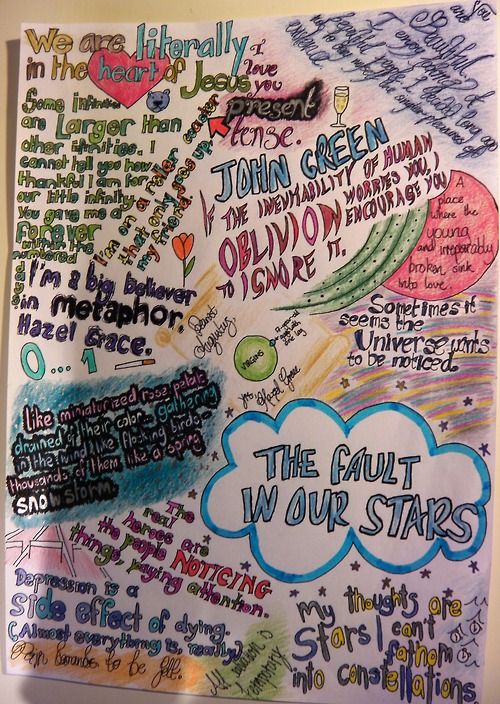 We are literally
in the heart of Jesus
I
love
you
present
tense.
Some infinities
are Larger than
other infinities. I
cannot tell you how
thankful I am for
our little infinity.
You gave me a
forever
within the
numbered
days
I'm on a roller coaster
that only goes up,
my friend.
JOHN GREEN
IF THE INEVITABILITY OF HUMAN
OBLIVION WORRIES YOU, I
ENCOURAGE YOU
TO IGNORE IT.
A
place
where the
young
and irreparably
broken sink
into love
I'm a big believer
in metaphor,
Hazel Grace.
0...1
Sometimes it
seems the
Universe wants
to be noticed.
Hazel Grace
like miniaturized rose petals
drained of their color... gathering
in the wind like flocking birds—
thousands of them, like a spring
snowstorm.
THE FAULT
IN OUR STARS
The
real
heroes are
the people NOTICING
things, paying attention.
Depression is a
side effect of dying.
(Almost everything is, really)
Pain demands to be felt.
My thoughts are
stars I can't
fathom
into constellations.